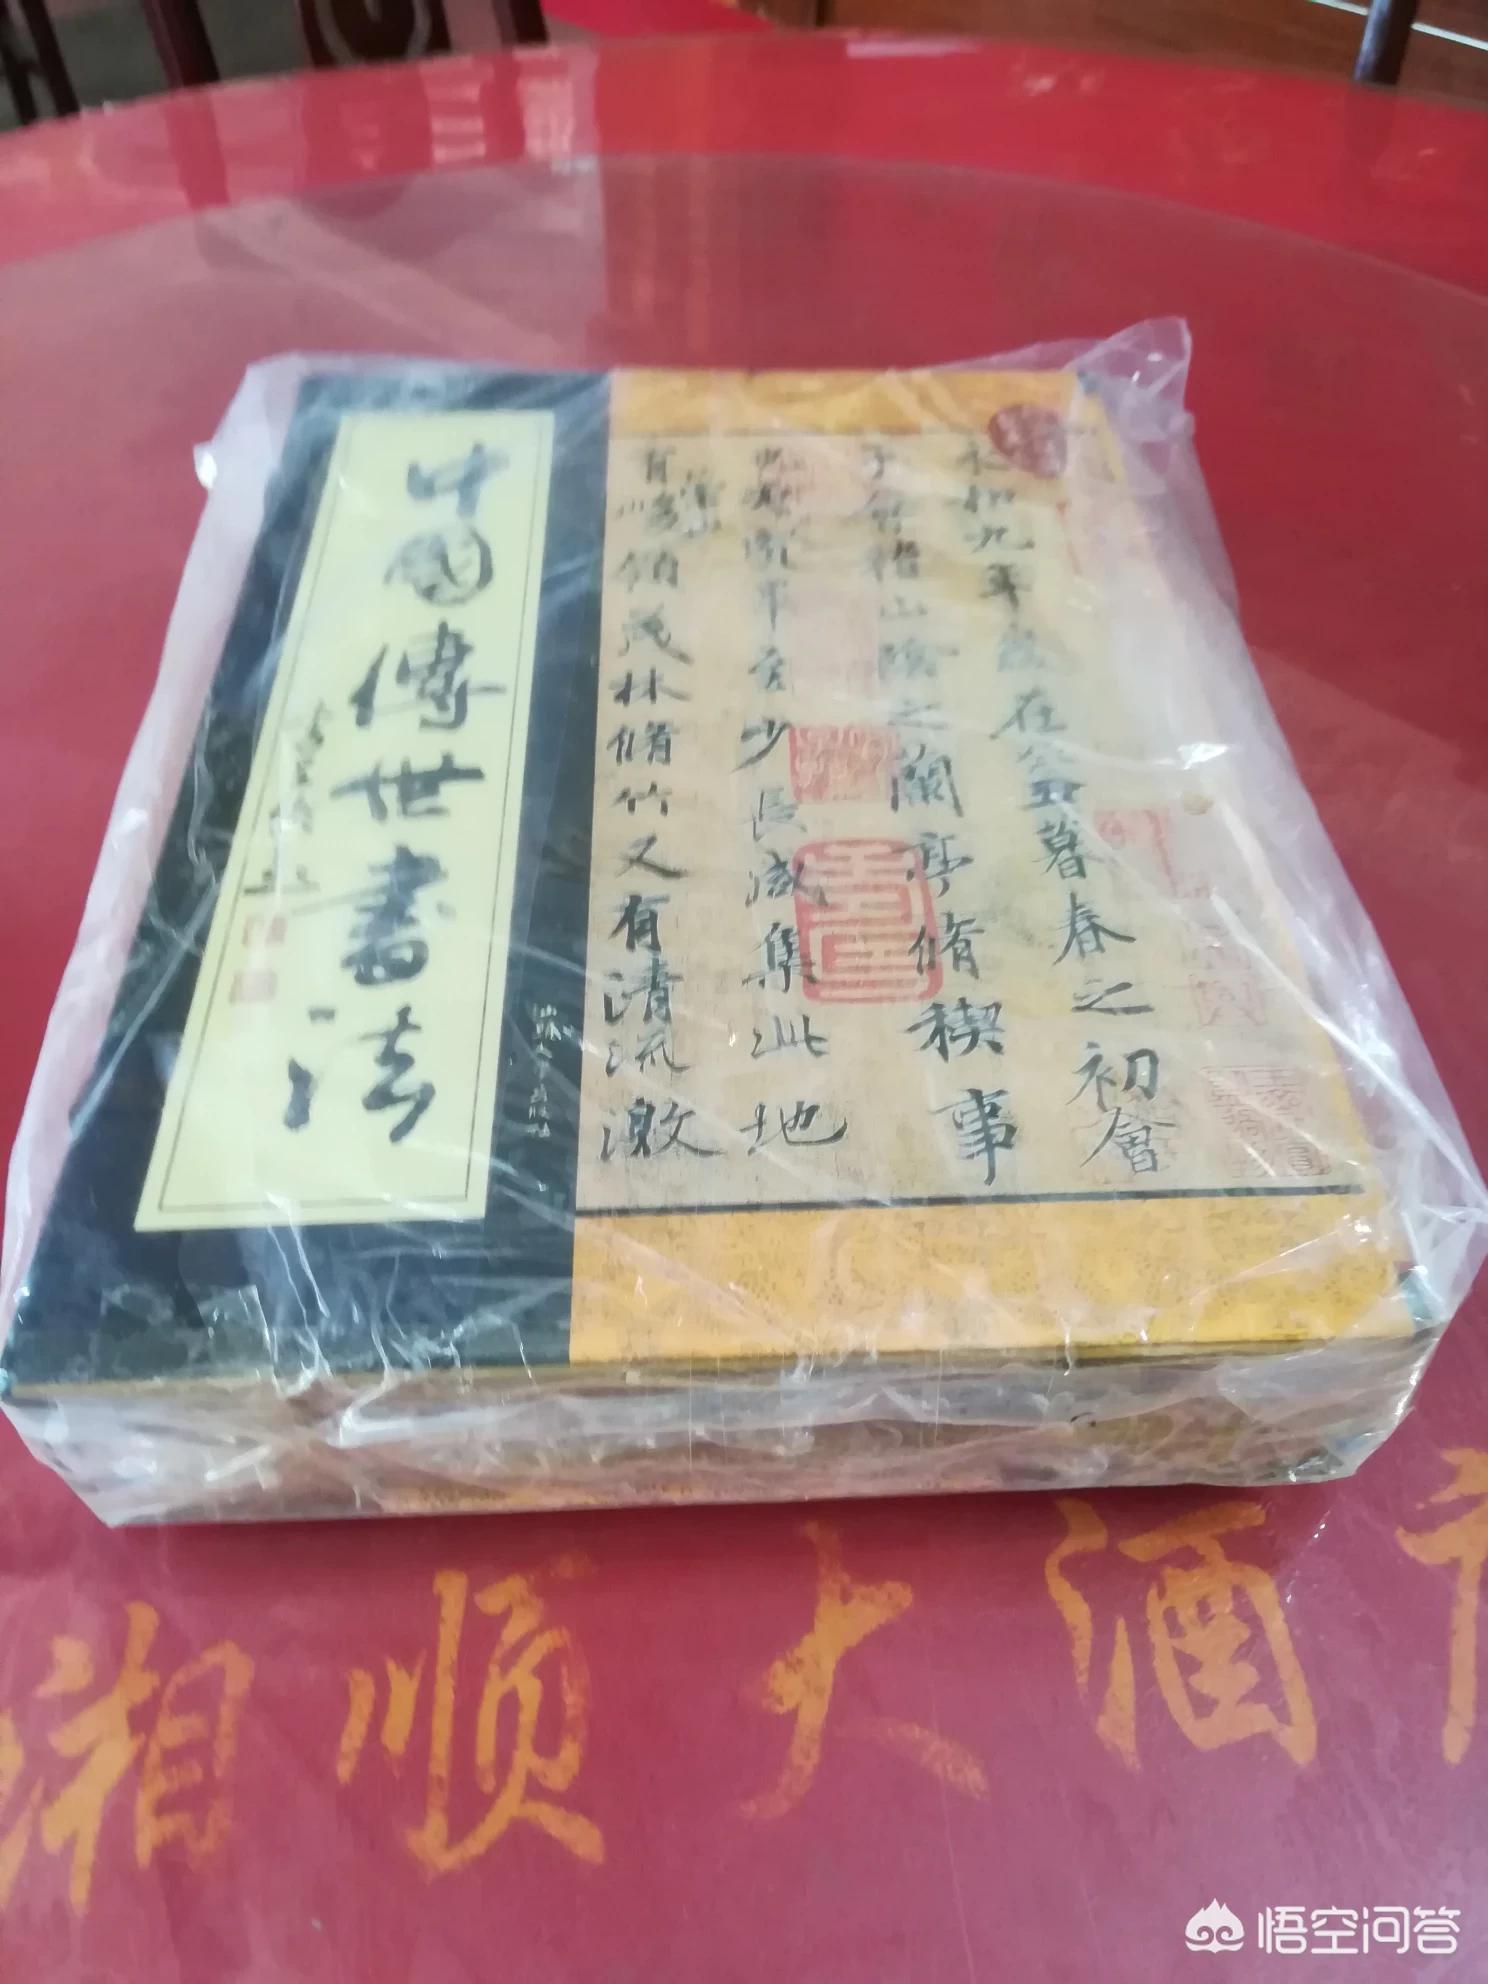 中國傳世書法
永和九年歲在癸丑暮春之初會
于會稽山陰之蘭亭脩稧事
少長咸集此地
領茂林脩竹又有清流激
湘顺大酒
悟空问答